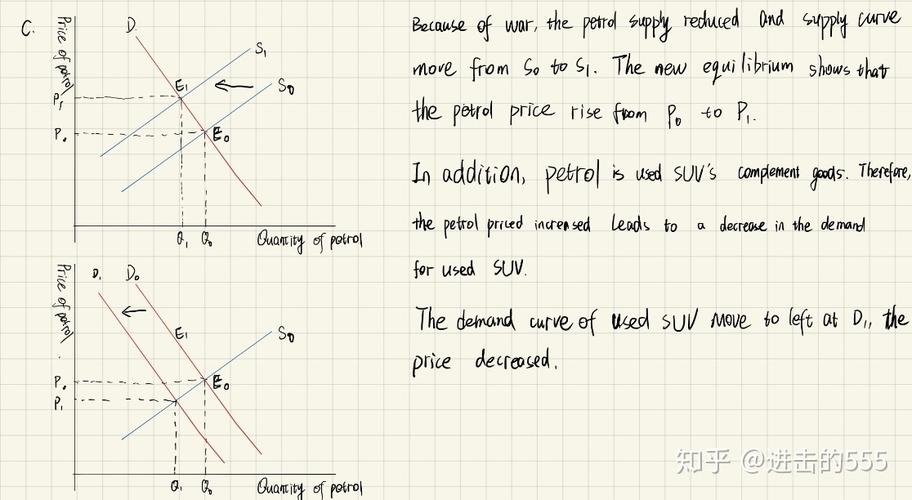 C.
Price of petrol
D.
S1
S0
E1
P1
P0
E0
Q1 Q0
Quantity of petrol
Price of petrol
D1 D0
E1
S0
P0
E0
P1
Q1 Q0
Quantity of petrol
Because of war, the petrol supply reduced and supply curve
move from S0 to S1. The new equilibrium shows that
the petrol price rise from P0 to P1.
In addition, petrol is used SUV's complement goods. Therefore,
the petrol priced increased leads to a decrease in the demand
for used SUV.
The demand curve of used SUV move to left at D1, the
price decreased.
知乎 @进击的555